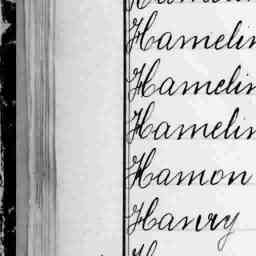 Hamelin
Hamelin
Hamelin
Hamon
Hanry